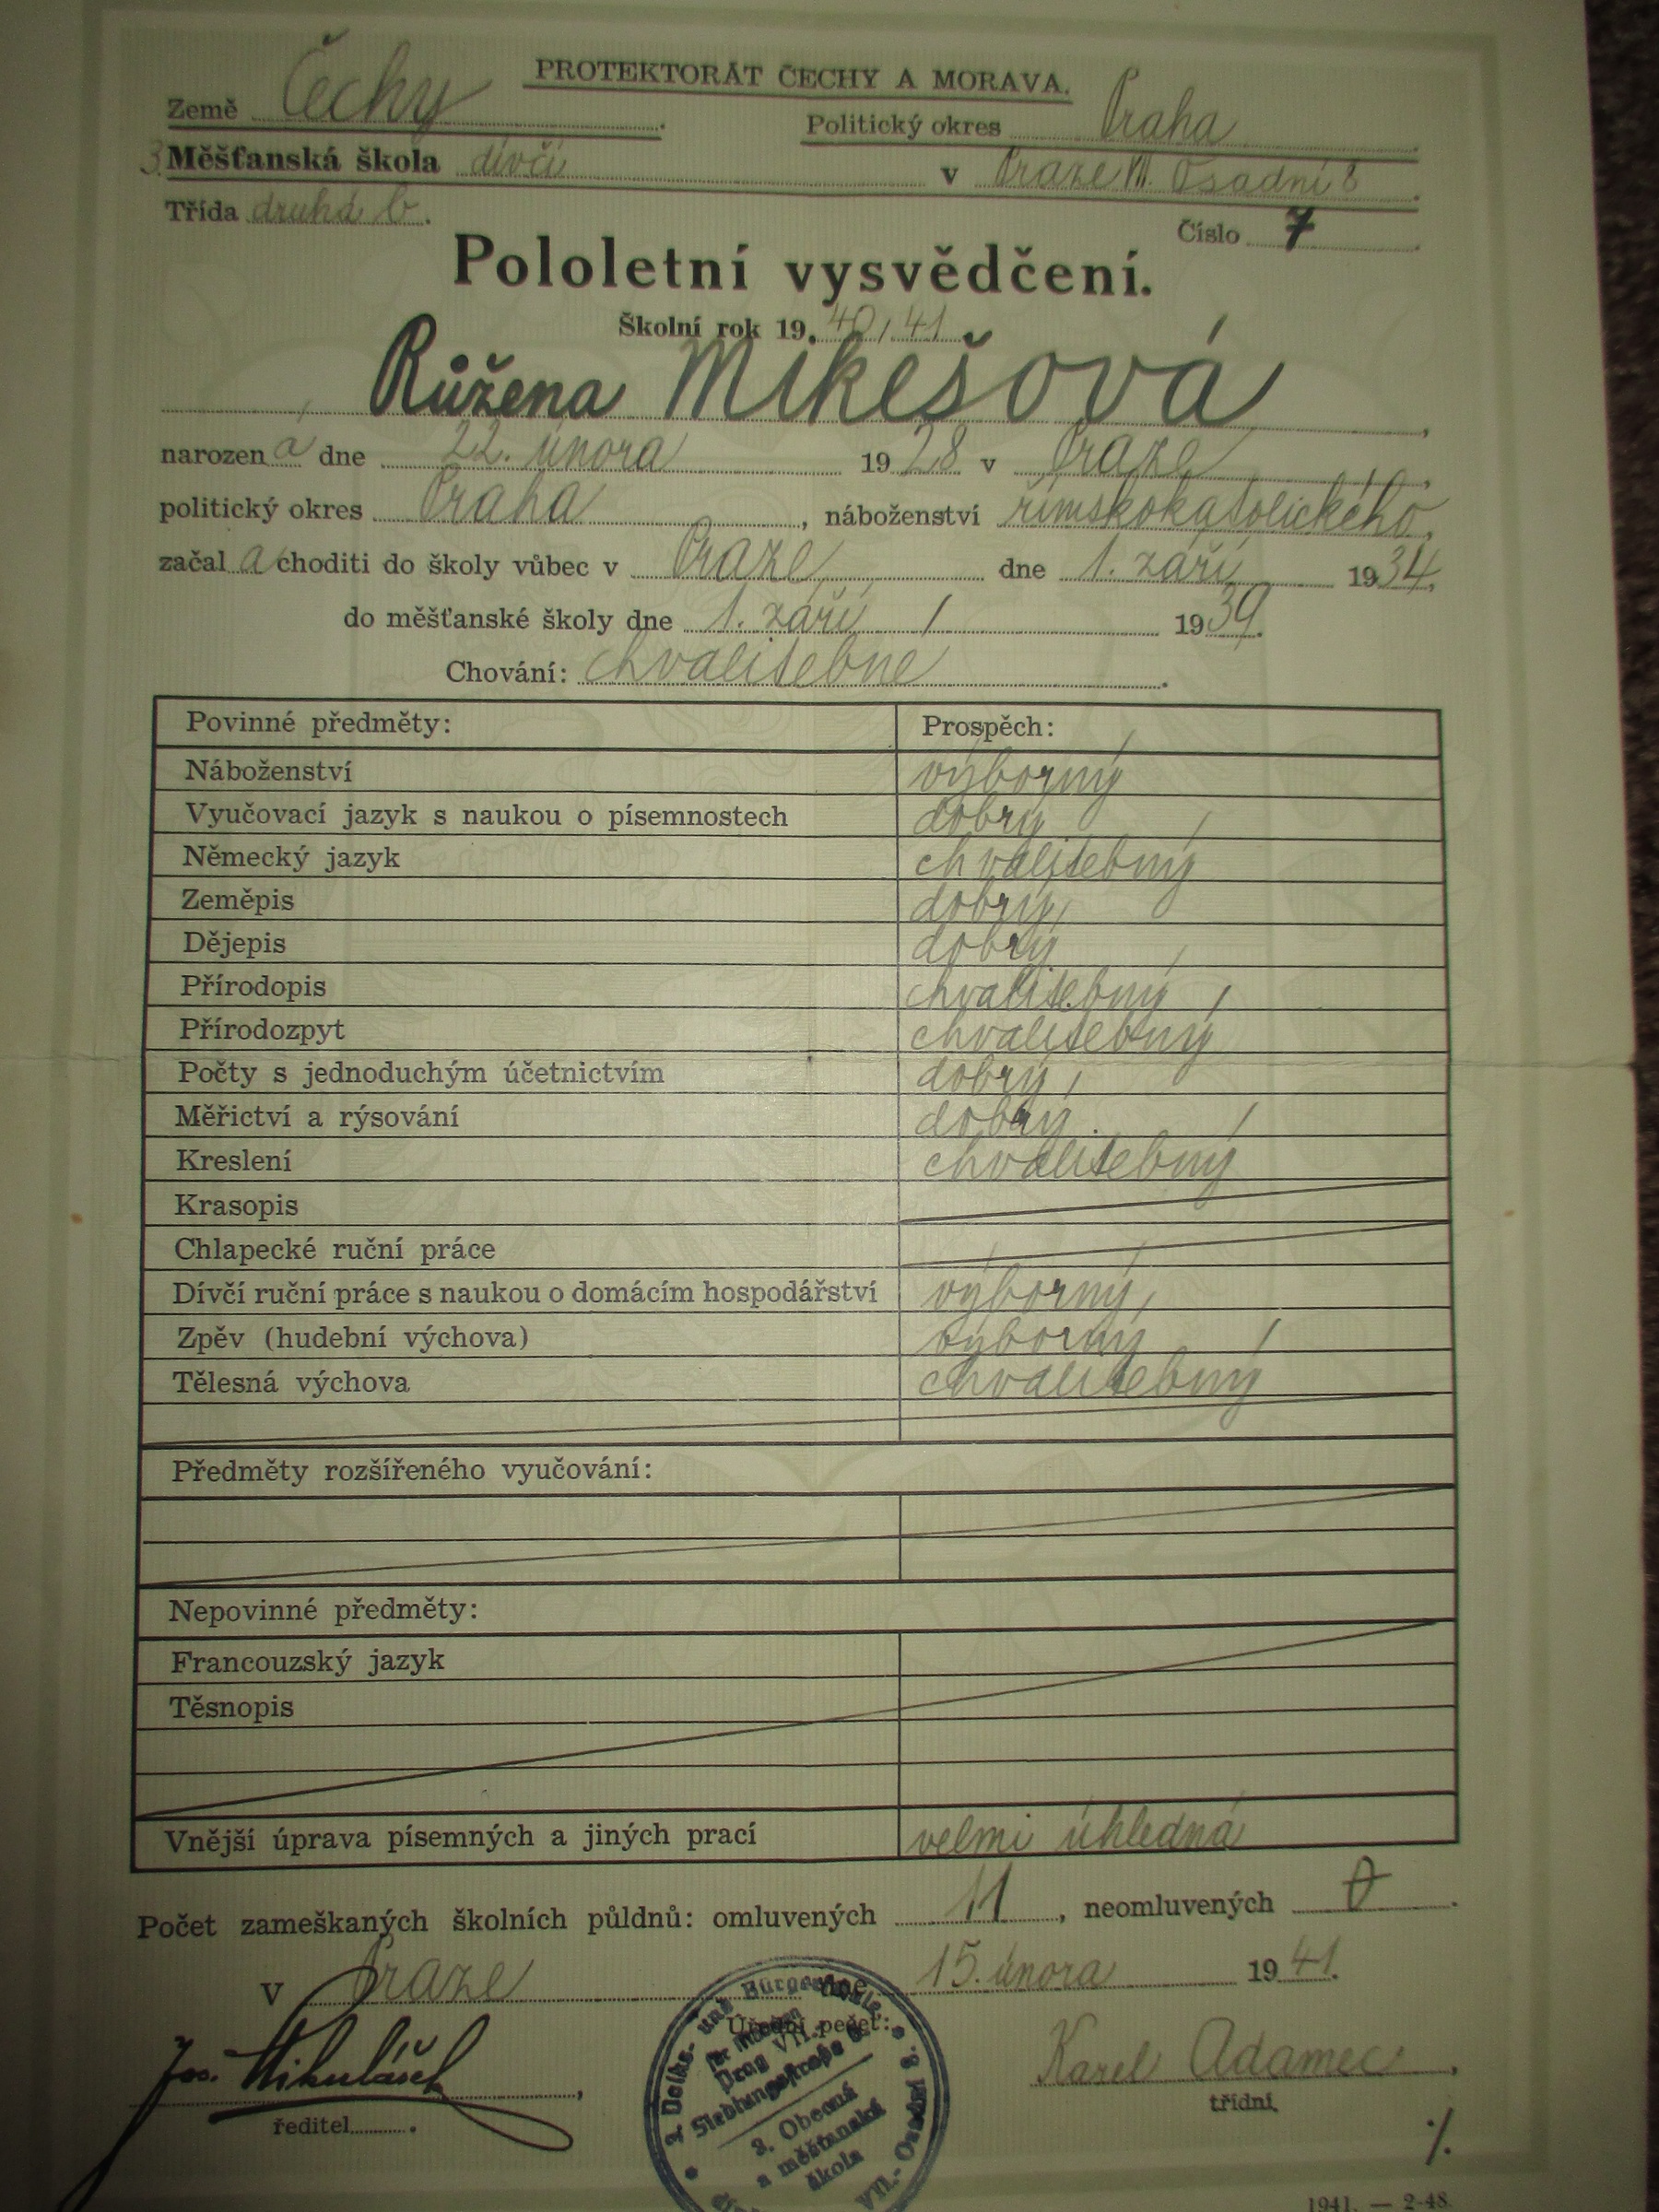 PROTEKTORÁT ČECHY A MORAVA.
Země Čechy Politický okres Praha
3. Měšťanská škola dívčí v Praze VII. Osadní 8
Třída druhá b. Číslo 7
Pololetní vysvědčení.
Školní rok 19.40/41.
Růžena Mikešová,
narozena dne 22. února 1928 v Praze,
politický okres Praha, náboženství římskokatolického,
začala choditi do školy vůbec v Praze, dne 1. září 1934,
do měšťanské školy dne 1. září 1939.
Chování: chvalitebné.
Povinné předměty: Prospěch:
Náboženství výborný
Vyučovací jazyk s naukou o písemnostech dobrý
Německý jazyk chvalitebný
Zeměpis dobrý
Dějepis dobrý
Přírodopis chvalitebný
Přírodozpyt chvalitebný
Počty s jednoduchým účetnictvím dobrý
Měřictví a rýsování dobrý
Kreslení chvalitebný
Krasopis
Chlapecké ruční práce
Dívčí ruční práce s naukou o domácím hospodářství výborný
Zpěv (hudební výchova) výborný
Tělesná výchova chvalitebný
Předměty rozšířeného vyučování:
Nepovinné předměty:
Francouzský jazyk
Těsnopis
Vnější úprava písemných a jiných prací velmi úhledná
Počet zameškaných školních půldnů: omluvených 11, neomluvených 0.
V Praze dne 15. února 1941.
Úřední pečeť:
3. Volks- und Bürgerschule
für Mädchen
Prag VII.-
Siedlungstraße 8.
3. Obecná
a měšťanská
škola
VII.- Osadní 8.
Jos. Mikulášek, Karel Adamec,
ředitel. třídní
./.
1941. — 2-48.